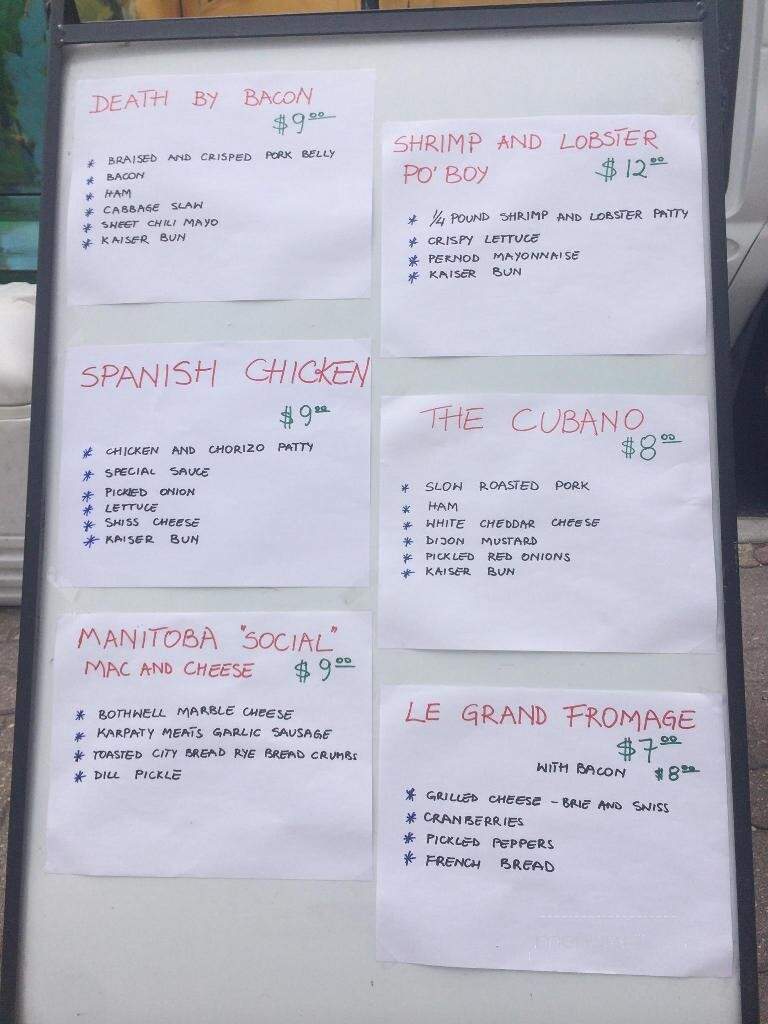 DEATH BY BACON
$9.00
* BRAISED AND CRISPED PORK BELLY
* BACON
* HAM
* CABBAGE SLAW
* SWEET CHILI MAYO
* KAISER BUN
SHRIMP AND LOBSTER
PO' BOY $12.00
* 1/4 POUND SHRIMP AND LOBSTER PATTY
* CRISPY LETTUCE
* PERNOD MAYONNAISE
* KAISER BUN
SPANISH CHICKEN
$9.00
* CHICKEN AND CHORIZO PATTY
* SPECIAL SAUCE
* PICKLED ONION
* LETTUCE
* SWISS CHEESE
* KAISER BUN
THE CUBANO
$8.00
* SLOW ROASTED PORK
* HAM
* WHITE CHEDDAR CHEESE
* DIJON MUSTARD
* PICKLED RED ONIONS
* KAISER BUN
MANITOBA "SOCIAL"
MAC AND CHEESE $9.00
* BOTHWELL MARBLE CHEESE
* KARPATY MEATS GARLIC SAUSAGE
* TOASTED CITY BREAD RYE BREAD CRUMBS
* DILL PICKLE
LE GRAND FROMAGE
$7.00
WITH BACON $8.00
* GRILLED CHEESE - BRIE AND SWISS
* CRANBERRIES
* PICKLED PEPPERS
* FRENCH BREAD